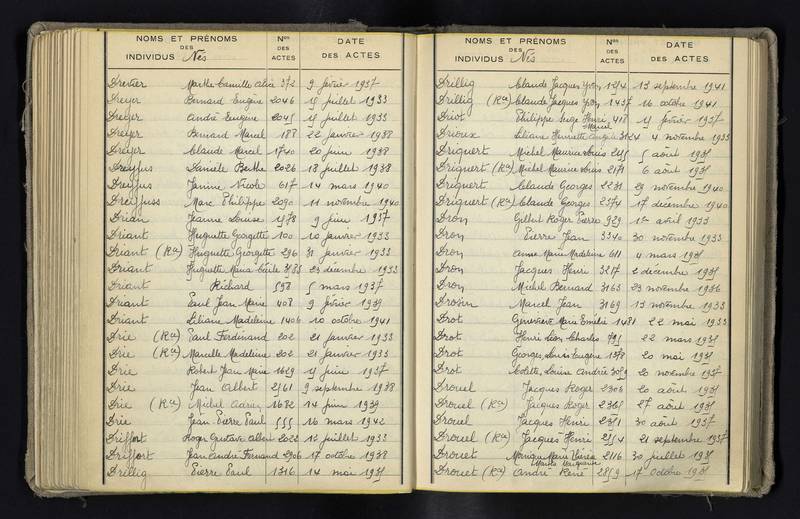 NOMS ET PRÉNOMS DES INDIVIDUS Nés
Nos DES ACTES
DATE DES ACTES
Dreyer Marthe Camille Alice 372 9 février 1937
Dreyer Bernard Eugène 2046 15 juillet 1933
Dreyer André Eugène 2045 15 juillet 1933
Dreyer Bernard Marcel 188 22 janvier 1938
Dreyer Claude Marcel 1740 20 juin 1938
Dreyfus Danièle Berthe 2026 18 juillet 1938
Dreyfus Janine Nicole 617 14 mars 1940
Dreyfuss Marc Philippe 2090 11 novembre 1940
Drian Jeanne Louise 1578 9 juin 1937
Driant Huguette Georgette 100 10 janvier 1933
Driant (Ra) Huguette Georgette 296 31 janvier 1933
Driant Huguette Maria Cécile 3785 23 décembre 1933
Driant Richard 598 5 mars 1937
Driant Paul Jean Marie 408 9 février 1939
Driant Liliane Madeleine 1406 10 octobre 1941
Drie (Ra) Paul Ferdinand 202 21 janvier 1933
Drie (Ra) Marcelle Madeleine 202 21 janvier 1933
Drie Robert Jean Marie 1629 15 juin 1937
Drie Jean Albert 2561 9 septembre 1938
Drie (Ra) Michel 1682 14 juin 1939
Drie Jean Pierre Paul 555 16 mars 1942
Driffort Roger Gustave Albert 2022 12 juillet 1933
Driffort Jean André Fernand 2906 17 octobre 1938
Drillig Pierre Paul 1316 14 mai 1935
NOMS ET PRÉNOMS DES INDIVIDUS Nés
Nos DES ACTES
DATE DES ACTES
Drillig Claude Jacques Yvon 1254 13 septembre 1941
Drillig (Ra) Claude Jacques Yvon 1457 16 octobre 1941
Driot Philippe Serge Henri Marcel 418 15 février 1937
Drioux Liliane Henriette Angèle 3124 4 novembre 1933
Driquert Michel Maurice Louis 5 août 1935
Driquert (Ra) Michel Maurice Louis 2171 6 août 1935
Driquert Claude Georges 2231 29 novembre 1940
Driquert (Ra) Claude Georges 2374 17 décembre 1940
Dron Gilbert Roger Pierre 929 1er avril 1933
Dron Pierre Jean 3340 30 novembre 1933
Dron Anne Marie Madeleine 611 4 mars 1935
Dron Jacques Henri 3217 2 décembre 1935
Dron Michel Bernard 3163 23 novembre 1936
Marcel Jean 3169 13 novembre 1933
Drot Geneviève Marie Emélie 1481 22 mai 1933
Drot Henri Léon Charles 795 22 mars 1935
Drot Georges Louis Eugène 1378 20 mai 1935
Drot Colette Louise Andrée 3059 20 novembre 1937
Drouel Jacques Roger 2306 20 août 1935
Drouel (Ra) Jacques Roger 2361 27 août 1935
Drouel Jacques Henri 2351 30 août 1937
Drouel (Ra) Jacques Henri 2554 21 septembre 1937
Drouet Monique Marie Thérèse Marthe Marguerite 2116 30 juillet 1935
Drouet (Ra) André René 2859 17 octobre 1935